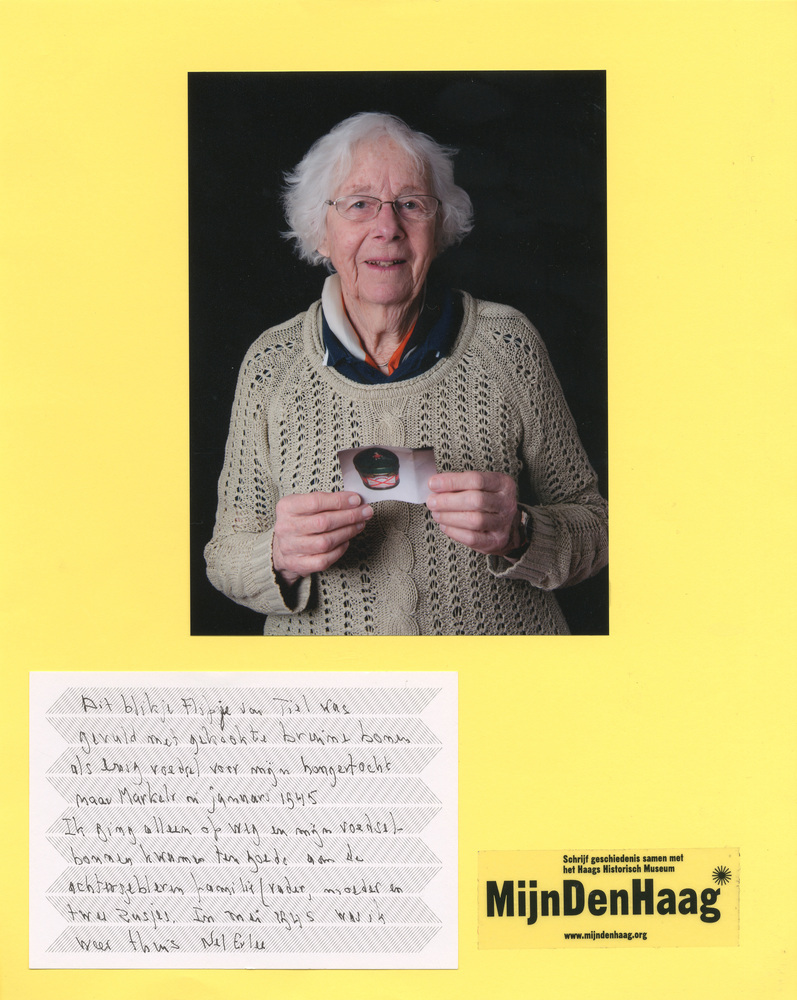 Dit blikje Flipje van Tiel was
gevuld met gekookte bruine bonen
als enig voedsel voor mijn hongertocht
naar Markelo in januari 1945
Ik ging alleen op weg en mijn voedsel-
bonnen kwamen ten goede aan de
achtergebleven familie (vader, moeder en
twee zusjes. In mei 1945 was ik
weer thuis Nel
Schrijf geschiedenis samen met
het Haags Historisch Museum
MijnDenHaag
www.mijndenhaag.org